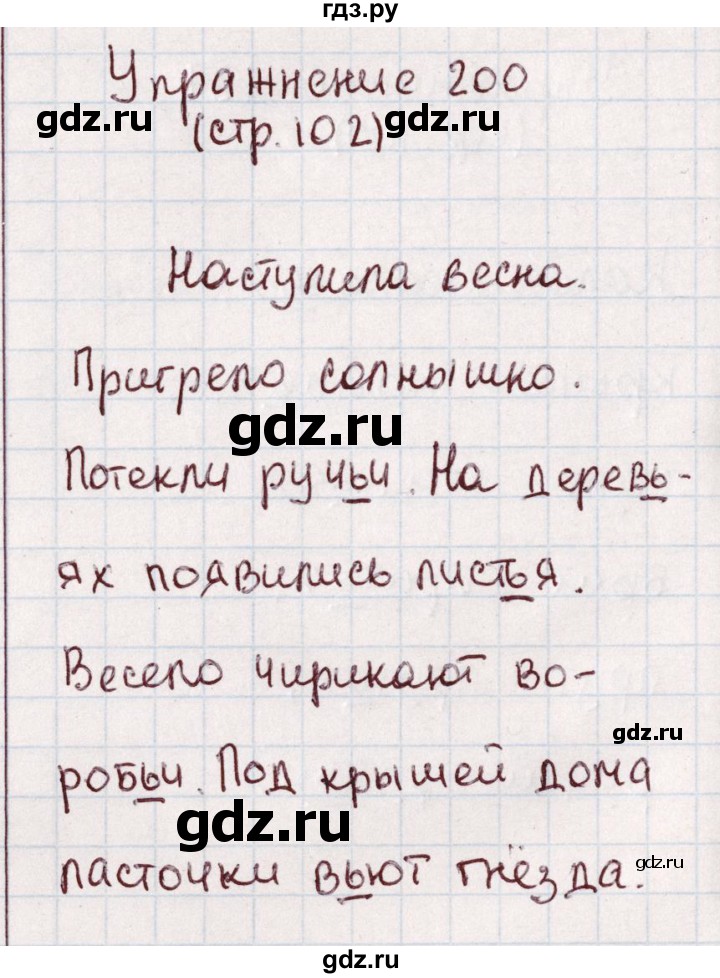 гдз.ру
Упражнение 200
gdz.ru
(стр. 102)
gdz.ru
Наступила весна.
Пригрело солнышко.
gdz.ru
Потекли ручьи. На деревь-
ях появились листья.
Весело чирикают во-
gdz.ru
робьи. Под крышей дома
gdz.ru
ласточки вьют гнёзда.
gdz.ru
gdz.ru